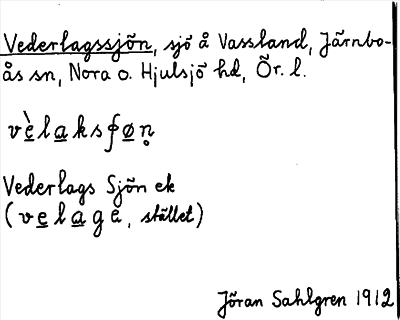 Vederlagssjön, sjö å Vassland, Järnbo-
ås sn, Nora o. Hjulsjö hd, Ör. l.
vèlaksʃøn̥
Vederlags Sjön ek
(velage, stället)
Jöran Sahlgren 1912